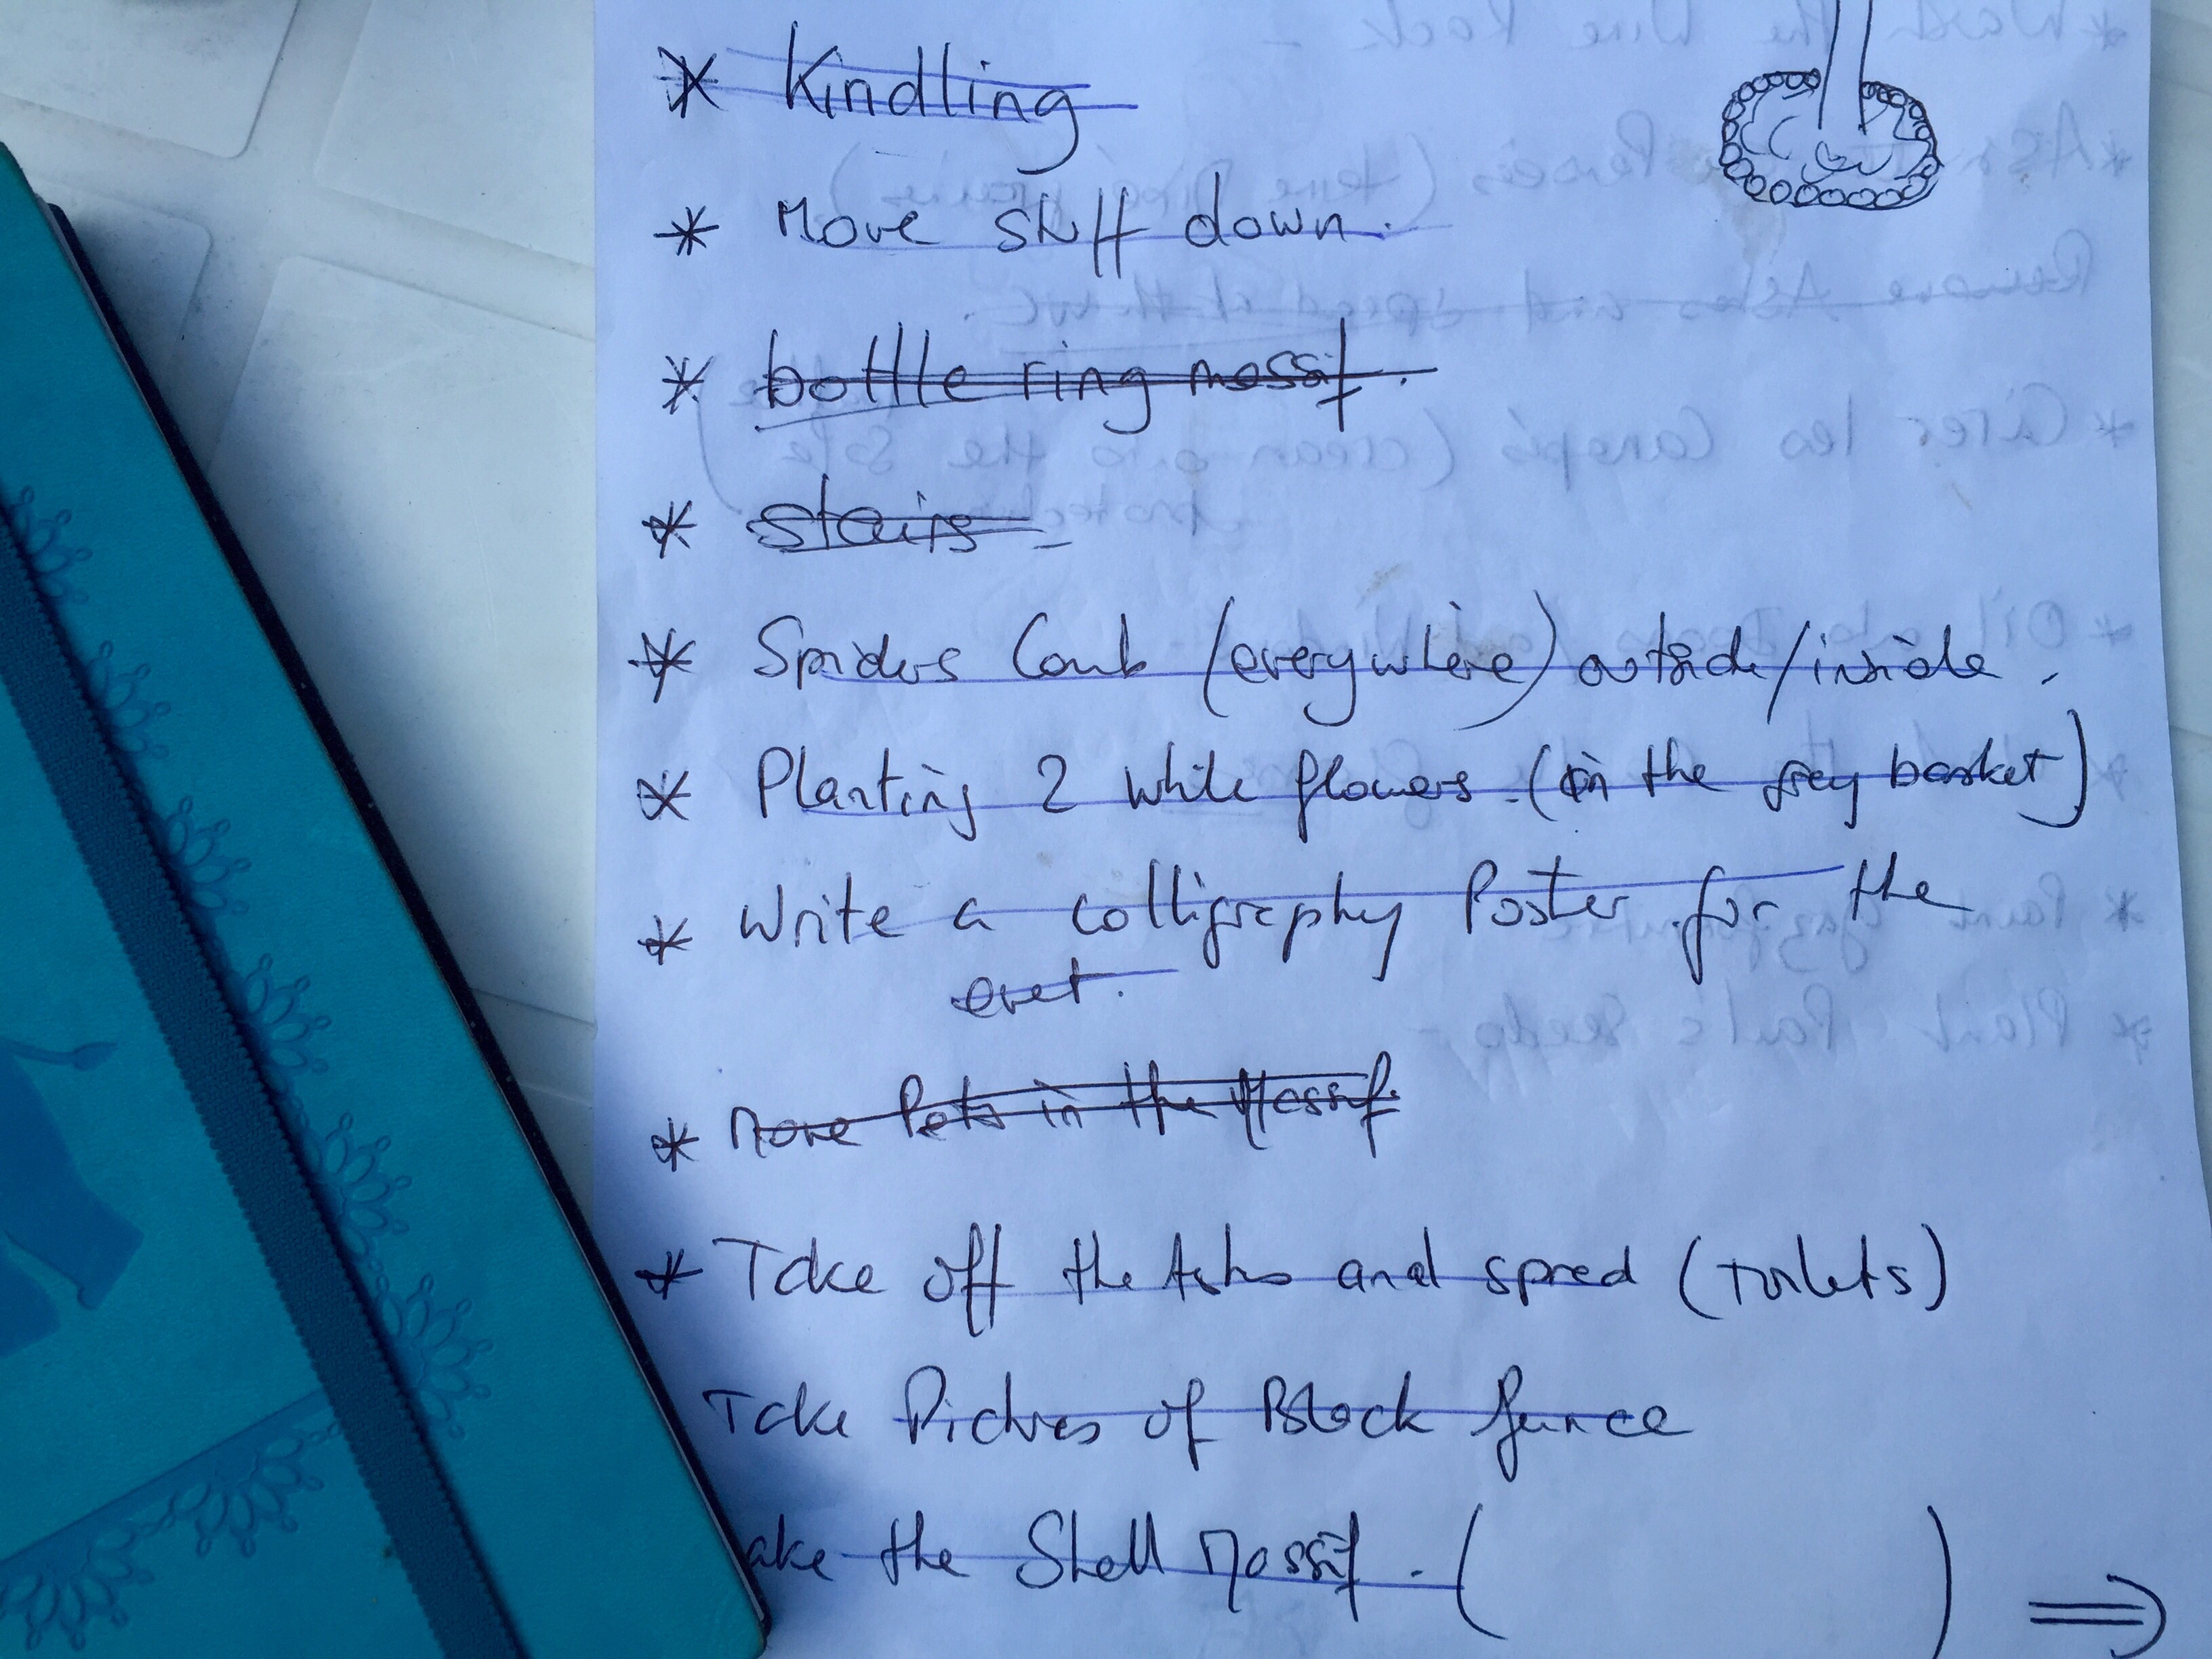 * Kindling
* Move stuff down.
* bottle ring massif.
* stairs -
* Spiders Comb (everywhere) outside/inside.
* Planting 2 white flowers. (in the grey basket)
* Write a calligraphy Poster for the
evet.
* Move Pots in the Massif.
* Take off the Ashes and spred (toilets)
Take Pictures of Black funce
ake the Shell Massif. ( ) ⇒